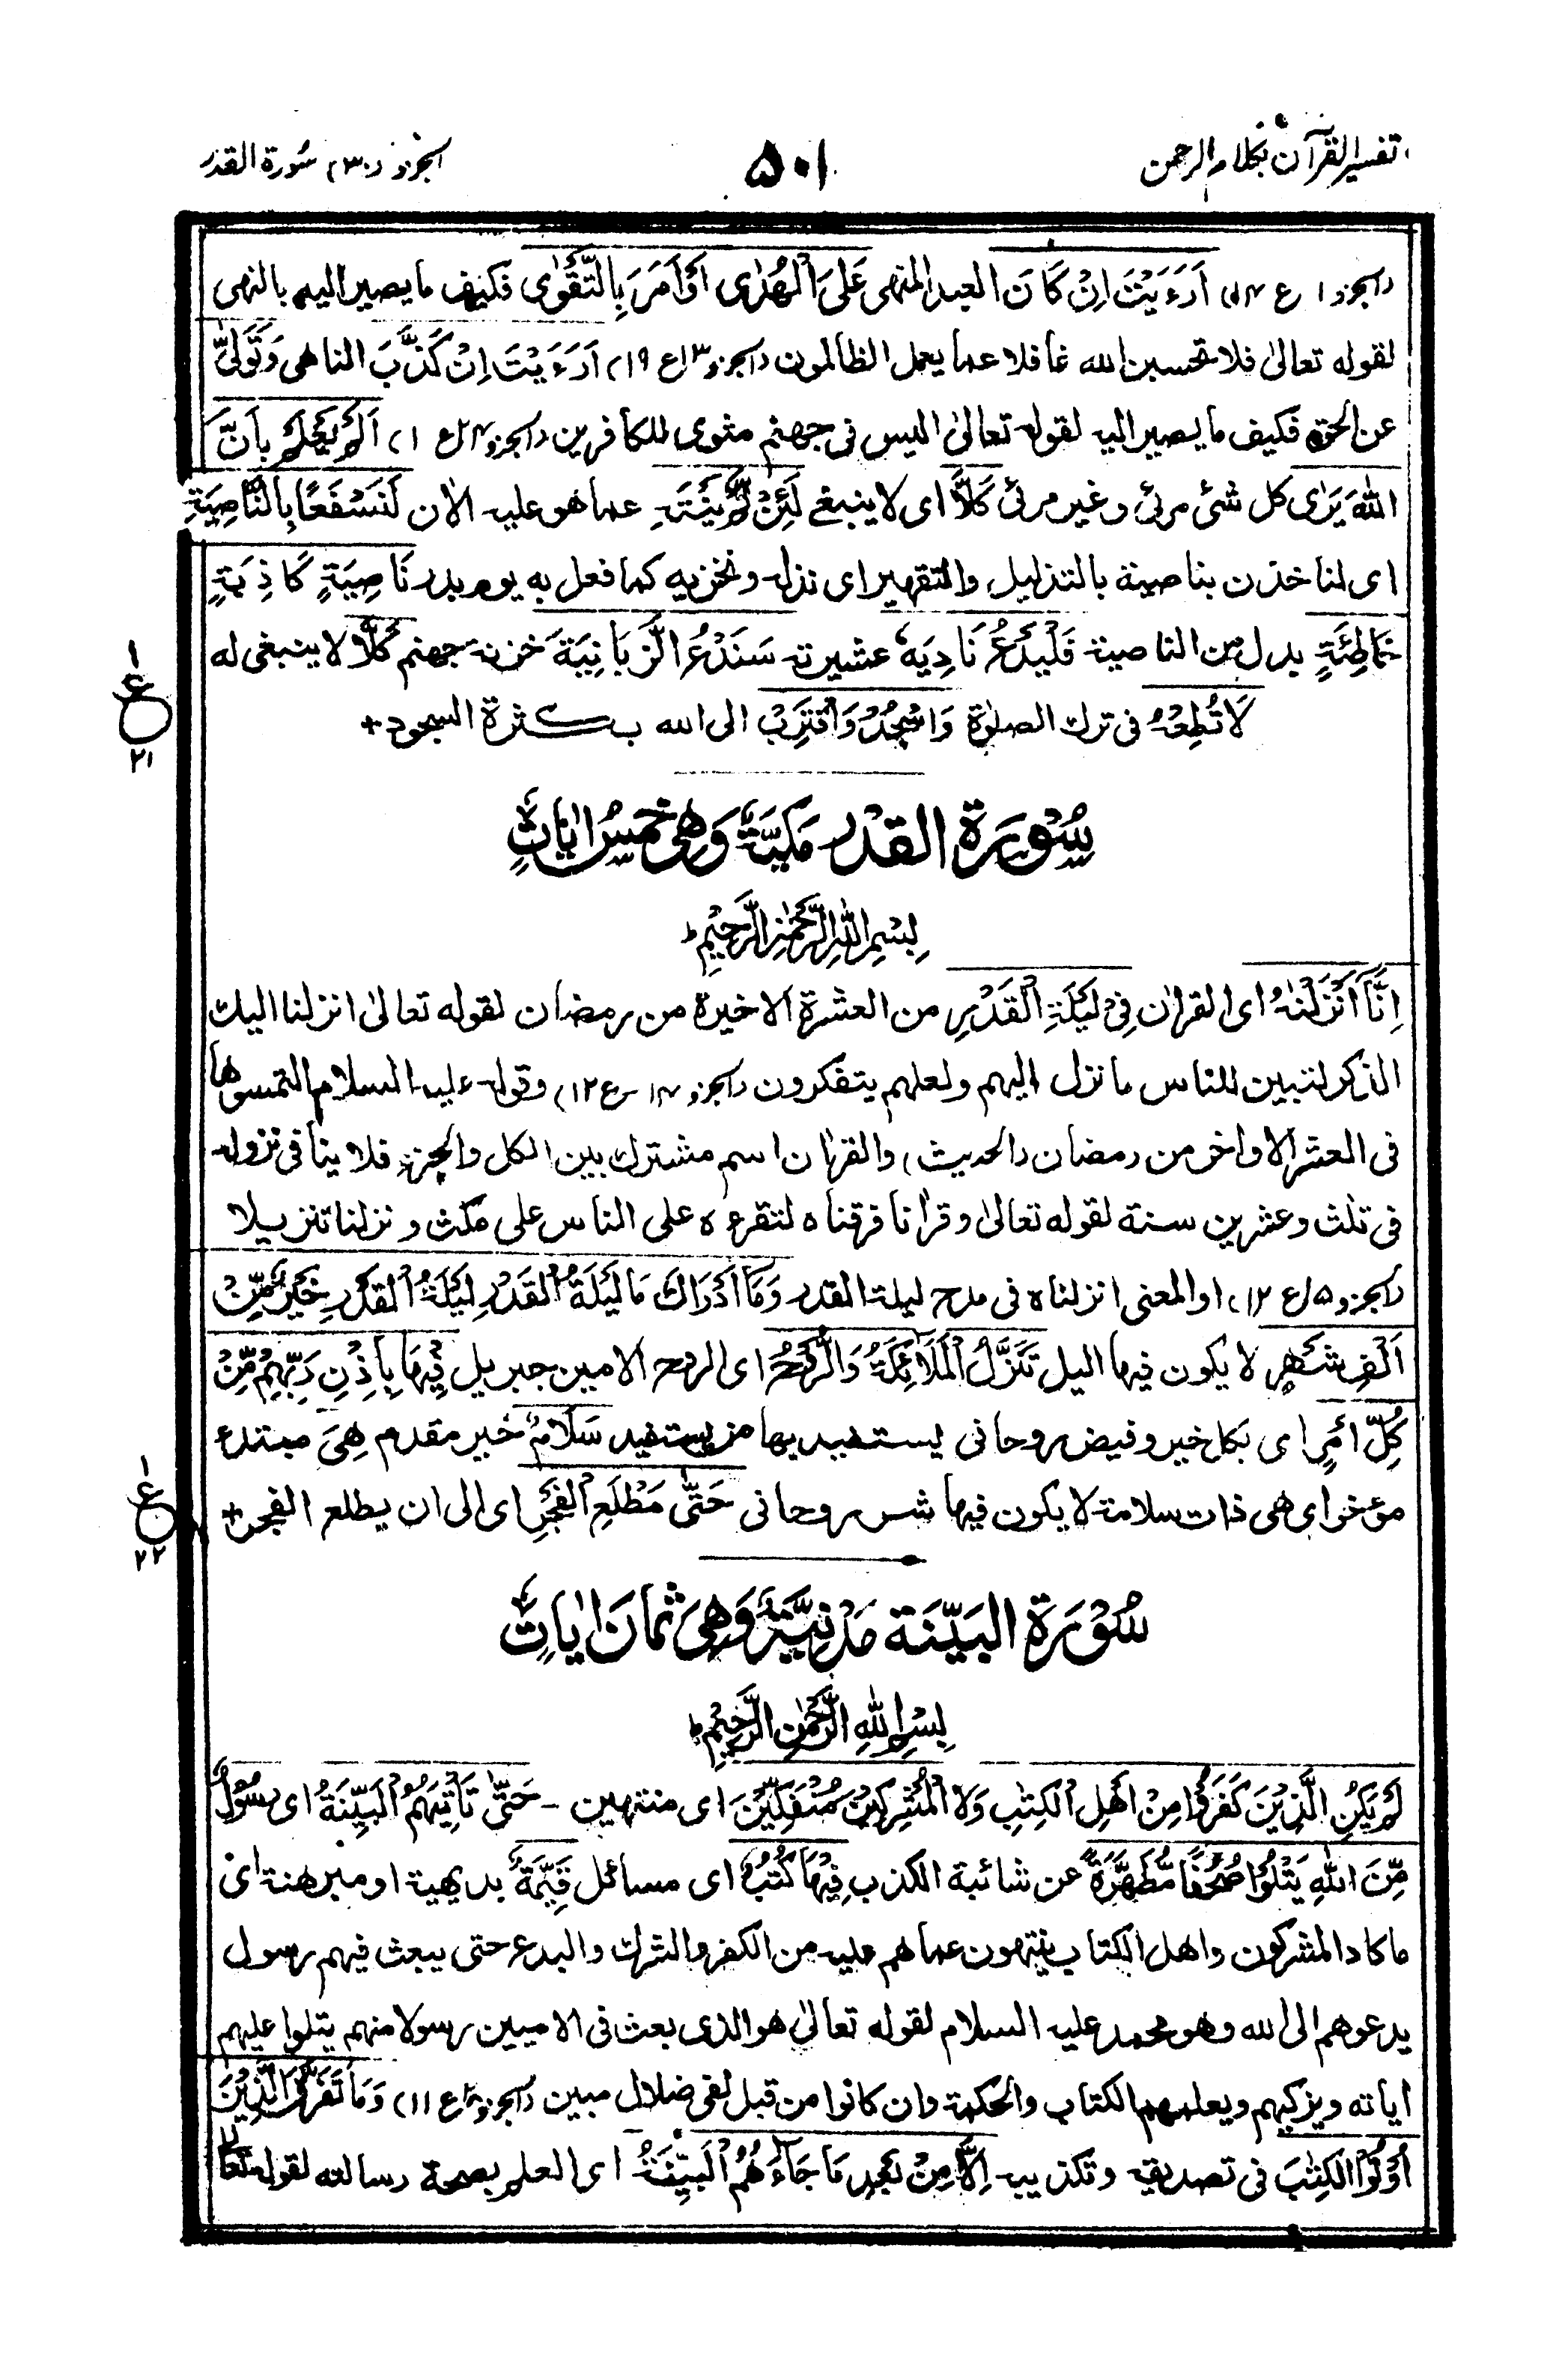 تفسير القرآن بكلام الرحمن
۵۰۱
الجزو (۳۰) سُورة القدر
(الجزو ١ ع ١٤) اَرَءَيْتَ اِنْ كَانَ العبد المنهى عَلَى الْهُدٰى اَوْ اَمَرَ بِالتَّقْوٰى فكيف ما يصير اليه بالنهى
لقوله تعالىٰ فلا تحسبن الله غافلا عما يعمل الظالمون (الجزو ١٣ ع ١٩) اَرَءَيْتَ اِنْ كَذَّبَ الناهى وَتَوَلّٰى
عن الحق فكيف ما يصير اليه لقوله تعالىٰ اليس فى جهنم مثوى للكافرين (الجزو ٢٤ ع ١) اَلَمْ يَعْلَمْ بِاَنَّ
اللّٰهَ يَرٰى كل شئ مرئى وغير مرئى كَلَّا اى لا ينبغى لَئِنْ لَّمْ يَنْتَهِ عما هو عليه الاٰن لَنَسْفَعًا بِالنَّاصِيَةِ
اى لناخذن بناصية بالتذليل والتقهير اى نذله ونخزيه كما فعل به يوم بدر نَاصِيَةٍ كَاذِبَةٍ
خَاطِئَةٍ بدل من الناصية فَلْيَدْعُ نَادِيَهٗ عشيرته سَنَدْعُ الزَّبَانِيَةَ خزنة جهنم كَلَّا لا ينبغى له
لَا تُطِعْهُ فى ترك الصلوٰة وَاسْجُدْ وَاقْتَرِبْ الى الله بكثرة السجود +
١
ع
٢١
سُوْرَة القدر مَكيَّةٌ وَهِىَ خَمسُ اٰيَاتٍ
بِسْمِ اللّٰهِ الرَّحْمٰنِ الرَّحِيْمِ ط
اِنَّا اَنْزَلْنٰهُ اى القراٰن فِىْ لَيْلَةِ الْقَدْرِ من العشرة الاخيرة من رمضان لقوله تعالىٰ انزلنا اليك
الذكر لتبين للناس ما نزل اليهم ولعلهم يتفكرون (الجزو ١٤ ع ١٢) وقوله عليه السلام التمسوها
فى العشر الاواخر من رمضان (الحديث) والقراٰن اسم مشترك بين الكل والجزء فلا ينافى نزوله
فى ثلث وعشرين سنة لقوله تعالىٰ وقراٰنا فرقناه لتقرءه على الناس على مكث ونزلنا تنزيلا
(الجزو ١٥ ع ١٢) او المعنى انزلناه فى مدح ليلة القدر وَمَا اَدْرَاكَ مَا لَيْلَةُ الْقَدْرِ لَيْلَةُ الْقَدْرِ خَيْرٌ مِّنْ
اَلْفِ شَهْرٍ لا يكون فيها اليل تَنَزَّلُ الْمَلَائِكَةُ وَالرُّوْحُ اى الروح الامين جبريل فِيْهَا بِاِذْنِ رَبِّهِمْ مِّنْ
كُلِّ اَمْرٍ اى بكل خير وفيض روحانى يستفيد بها من يستفيد سَلَامٌ خبر مقدم هِىَ مبتدء
مؤخر اى هى ذات سلامة لا يكون فيها شر روحانى حَتّٰى مَطْلَعِ الْفَجْرِ اى الى ان يطلع الفجر +
١
ع
٢٢
سُوْرَة البَيّنَة مَدَنِيَّةٌ وَهِىَ ثَمَانَ اٰيَاتٍ
بِسْمِ اللّٰهِ الرَّحْمٰنِ الرَّحِيْمِ ط
لَمْ يَكُنِ الَّذِيْنَ كَفَرُوْا مِنْ اَهْلِ الْكِتٰبِ وَلَا الْمُشْرِكِيْنَ مُنْفَكِّيْنَ اى منتهين - حَتّٰى تَاْتِيَهُمُ الْبَيِّنَةُ اى رَسُوْلٌ
مِّنَ اللّٰهِ يَتْلُوْا صُحُفًا مُّطَهَّرَةً عن شائبة الكذب فِيْهَا كُتُبٌ اى مسائل قَيِّمَةٌ بديهية او مبرهنة اى
ما كاد المشركون واهل الكتاب ينتهون عما هم عليه من الكفر والشرك والبدع حتى يبعث فيهم رسول
يدعوهم الى الله وهو محمد عليه السلام لقوله تعالىٰ هو الذى بعث فى الاميين رسولا منهم يتلوا عليهم
اياته ويزكيهم ويعلمهم الكتاب والحكمة وان كانوا من قبل لفى ضلال مبين (الجزو ٢٨ ع ١١) وَمَا تَفَرَّقَ الَّذِيْنَ
اُوْتُوا الْكِتٰبَ فى تصديقه وتكذيبه اِلَّا مِنْ بَعْدِ مَا جَاءَتْهُمُ الْبَيِّنَةُ اى العلم بصحة رسالته لقوله تعالىٰ